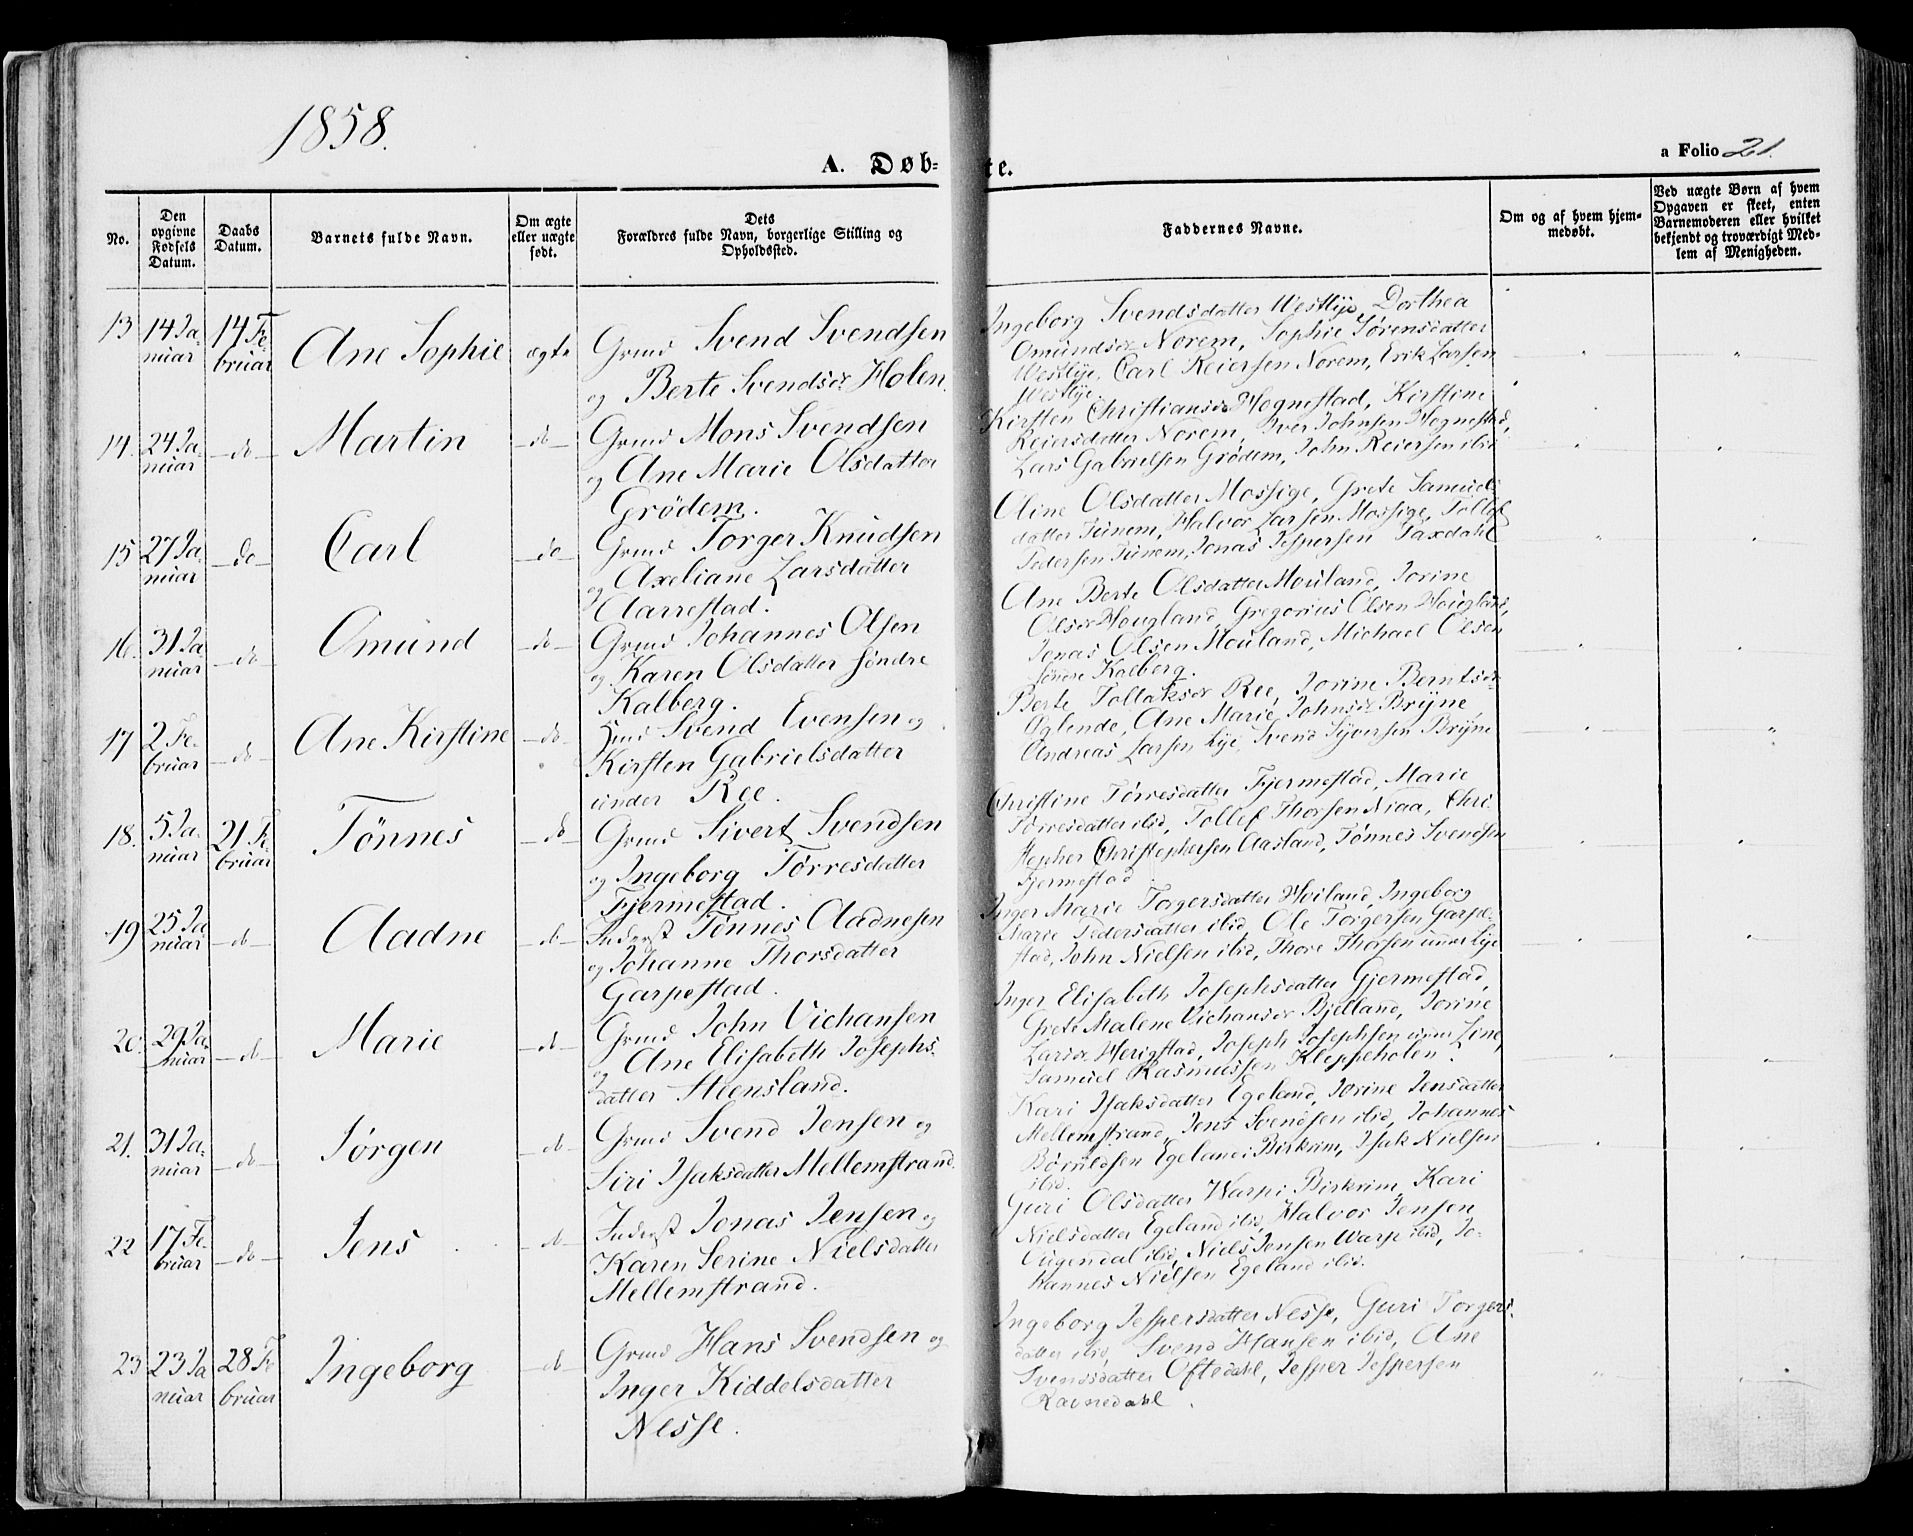 1858.
A. Døb-
te.
a Folio 21.
No.
Den opgivne Fødsels Datum.
Daabs Datum.
Barnets fulde Navn.
Om ægte eller uægte født.
Dets Forældres fulde Navn, borgerlige Stilling og Opholdssted.
Faddernes Navne.
Om og af hvem hjemmedøbt.
Ved uægte Børn af hvem Opgaven er skeet, enten Barnemoderen eller hvilket bekjendt og troværdigt Medlem af Menigheden.
13 14 Ja- 14 Fe- Ane Sophie ægte Grmd Svend Svendsen
nuar bruar og Berte Svendsd: Holen.
Ingeborg Svendsdatter Westlye, Dorthea
Omundsd: Norem, Sophie Sørensdatter
Westlye, Carl Reiersen Norem, Erik Larsen
Westlye.
14. 24 Ja- do Martin do Grmd Mons Svendsen
nuar og Ane Marie Olsdatter
Grødem.
Kirsten Christiansd: Hognestad, Kirstine
Reiersdatter Norem, Iver Johnsen Hognestad,
Lars Gabrielsen Grødem, John Reiersen ibid
15 27 Ja- do Carl do Grmd Torger Knudsen
nuar og Axeliane Larsdatter
Aarrestad.
Oline Olsdatter Mossige, Grete Samuels
datter Tunem, Halvor Larsen Mossige, Tollef
Pedersen Tunem, Jonas Jespersen Taxdahl
16. 31 Ja do Omund do Grmd Johannes Olsen
nuar og Karen Olsdatter søndre
Kalberg.
Ane Berte Olsdatter Mouland, Jorine
Olsd: Hougland, Gregorius Olsen Hougland,
Jonas Olsen Mouland, Michael Olsen
søndre Kalberg.
17 2 Fe- do Ane Kirstine do Hmd Svend Evensen og
bruar Kirsten Gabrielsdatter
under Ree.
Berte Tollaksd: Ree, Jorine Berntsd:
Oglende, Ane Marie Johnsd: Bryne,
Andreas Larsen Lye, Svend Syversen Bryne
18. 5 Ja- 21 Fe Tönnes do Grmd Sivert Svendsen
nuar bruar og Ingeborg Tørresdatter
Fjermestad.
Christine Tørresdatter Fjermestad, Marie
Tørresdatter ibid, Tollef Thorsen Niaa, Chri-
stepher Christophersen Aasland, Tønnes Svendsen
Fjermestad.
19 25 Ja do Aadne do Inderst Tönnes Aadnesen
nuar og Johanne Thorsdatter
Garpestad.
Inger Marie Torgersdatter Høiland, Ingeborg
Marie Pedersdatter ibid, Ole Torgersen Garpe-
stad, John Nielsen ibid, Thore Thorsen under Lye
20. 29 Ja- do Marie do Grmd John Vichansen
nuar og Ane Elisabeth Josephs-
datter Steensland.
Inger Elisabeth Josephsdatter Gjermestad,
Grete Malene Vichansd: Bjelland, Jorine
Larsd: Herigstad, Joseph Josephsen under Line,
Samuel Rasmussen Kleppeholen.
21. 31 Ja- do Jørgen do Grmd Svend Jensen og
nuar Siri Isaksdatter Mellemstrand.
Kari Isaksdatter Egeland, Jorine Jensdatter
Mellemstrand, Jens Svendsen ibid, Johannes
Børuldsen Egeland i Birkrim, Isak Nielsen
ibid.
22 17 Fe- do Jens do Inderst Jonas Jensen og
bruar Karen Serine Nielsdatter
Mellemstrand.
Guri Olsdatter Warp i Birkrim, Kari
Nielsdatter Egeland ibid, Halvor Jensen
ibid, Niels Jensen Warp ibid, Jo-
hannes Nielsen Egeland ibid.
23 23 Ja 28 Fe Ingeborg do Grmd Hans Svendsen og
nuar bruar Inger Kiddelsdatter
Nesse.
Ingeborg Jespersdatter Nesse, Guri Torgers-
datter ibid, Svend Hansen ibid, Ane
Svendsdatter Oftedahl, Jesper Jespersen
Ravnedahl.